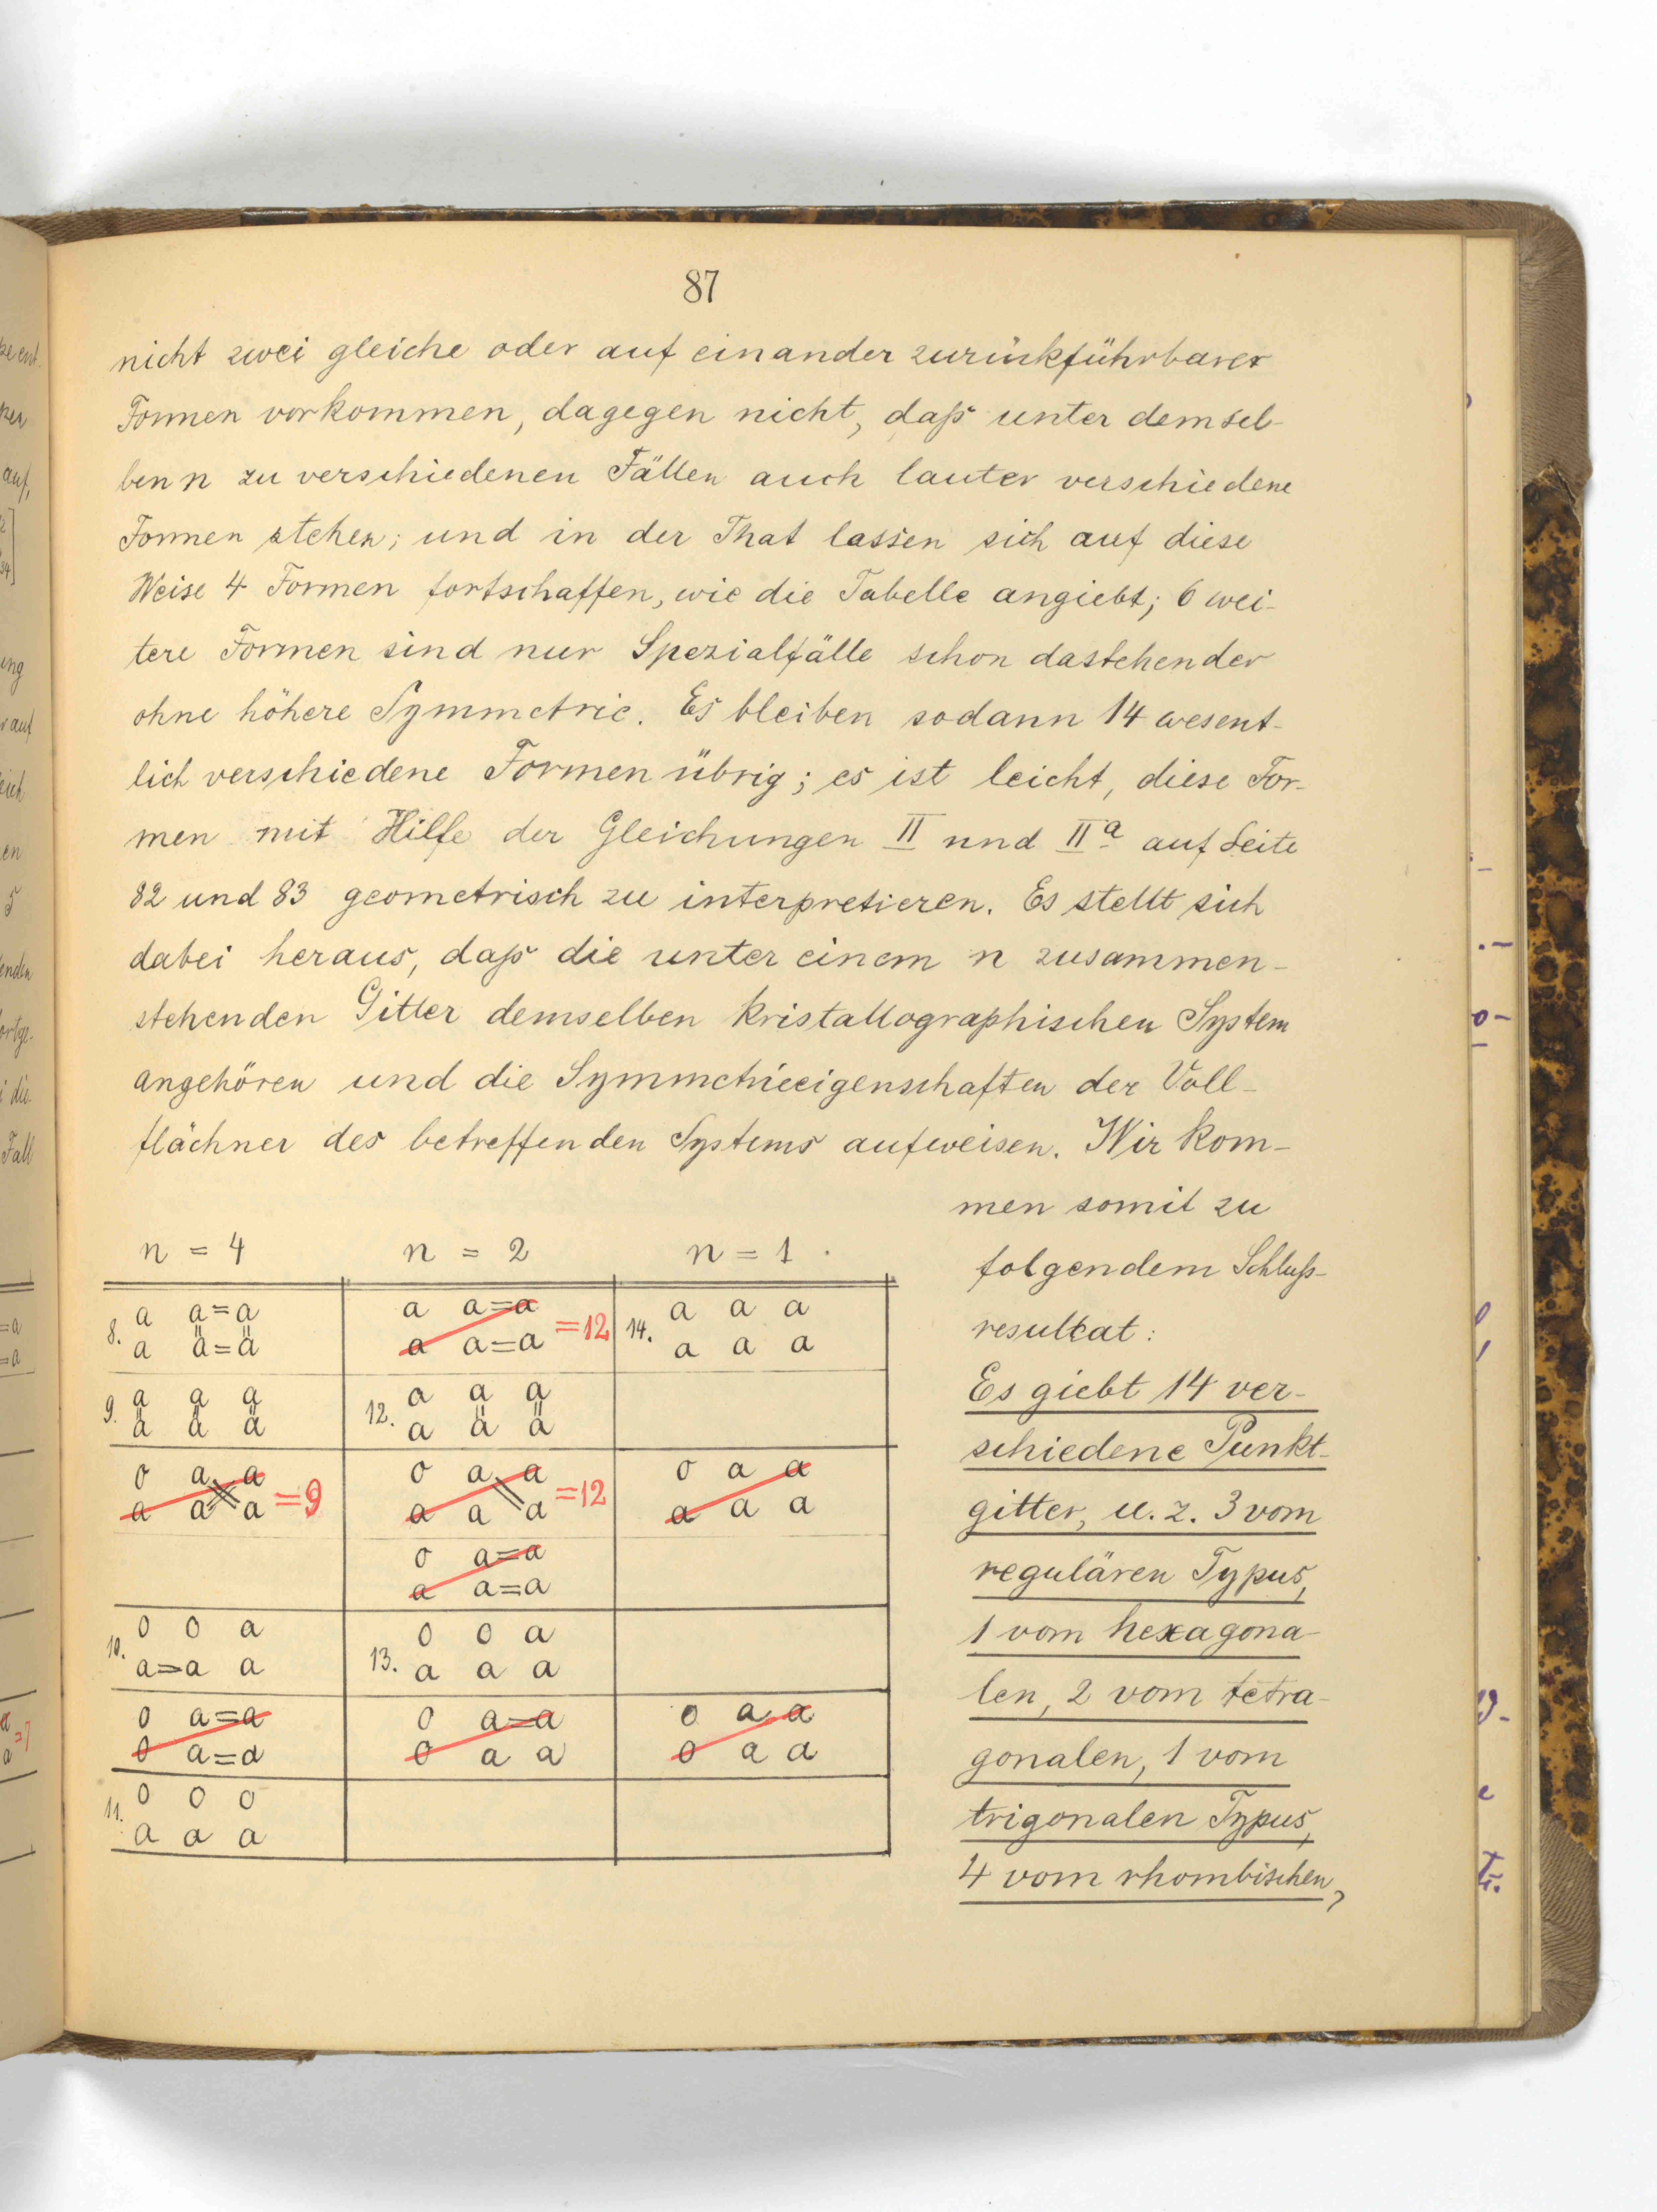 87
nicht zwei gleiche oder auf einander zurückführbarer
Formen vorkommen, dagegen nicht, daß unter demsel-
ben n zu verschiedenen Fällen auch lauter verschiedene
Formen stehen; und in der That lassen sich auf diese
Weise 4 Formen fortschaffen, wie die Tabelle angiebt; 6 wei-
tere Formen sind nur Spezialfälle schon dastehender
ohne höhere Symmetrie. Es bleiben sodann 14 wesent-
lich verschiedene Formen übrig; es ist leicht, diese For-
men mit Hilfe der Gleichungen II und IIa auf Seite
82 und 83 geometrisch zu interpretieren. Es stellt sich
dabei heraus, daß die unter einem n zusammen-
stehenden Gitter demselben kristallographischen System
angehören und die Symmetrieeigenschaften der Voll-
flächner des betreffenden Systems aufweisen. Wir kom-
men somit zu
folgendem Schluß-
resultat:
Es giebt 14 ver-
schiedene Punkt-
gitter, u. z. 3 vom
regulären Typus,
1 vom hexagona-
len, 2 vom tetra-
gonalen, 1 vom
trigonalen Typus,
4 vom rhombischen,
n = 4 n = 2 n = 1
8. a a=a
a a=a
a a=a
a a=a =12
14. a a a
a a a
9. a a a
a a a
12. a a a
a a a
o a a
a a a =9
o a a
a a a =12
o a a
a a a
o a=a
a a=a
10. o o a
a=a a
13. o o a
a a a
o a=a
o a=a
o a=a
o a a
o a a
o a a
11. o o o
a a a